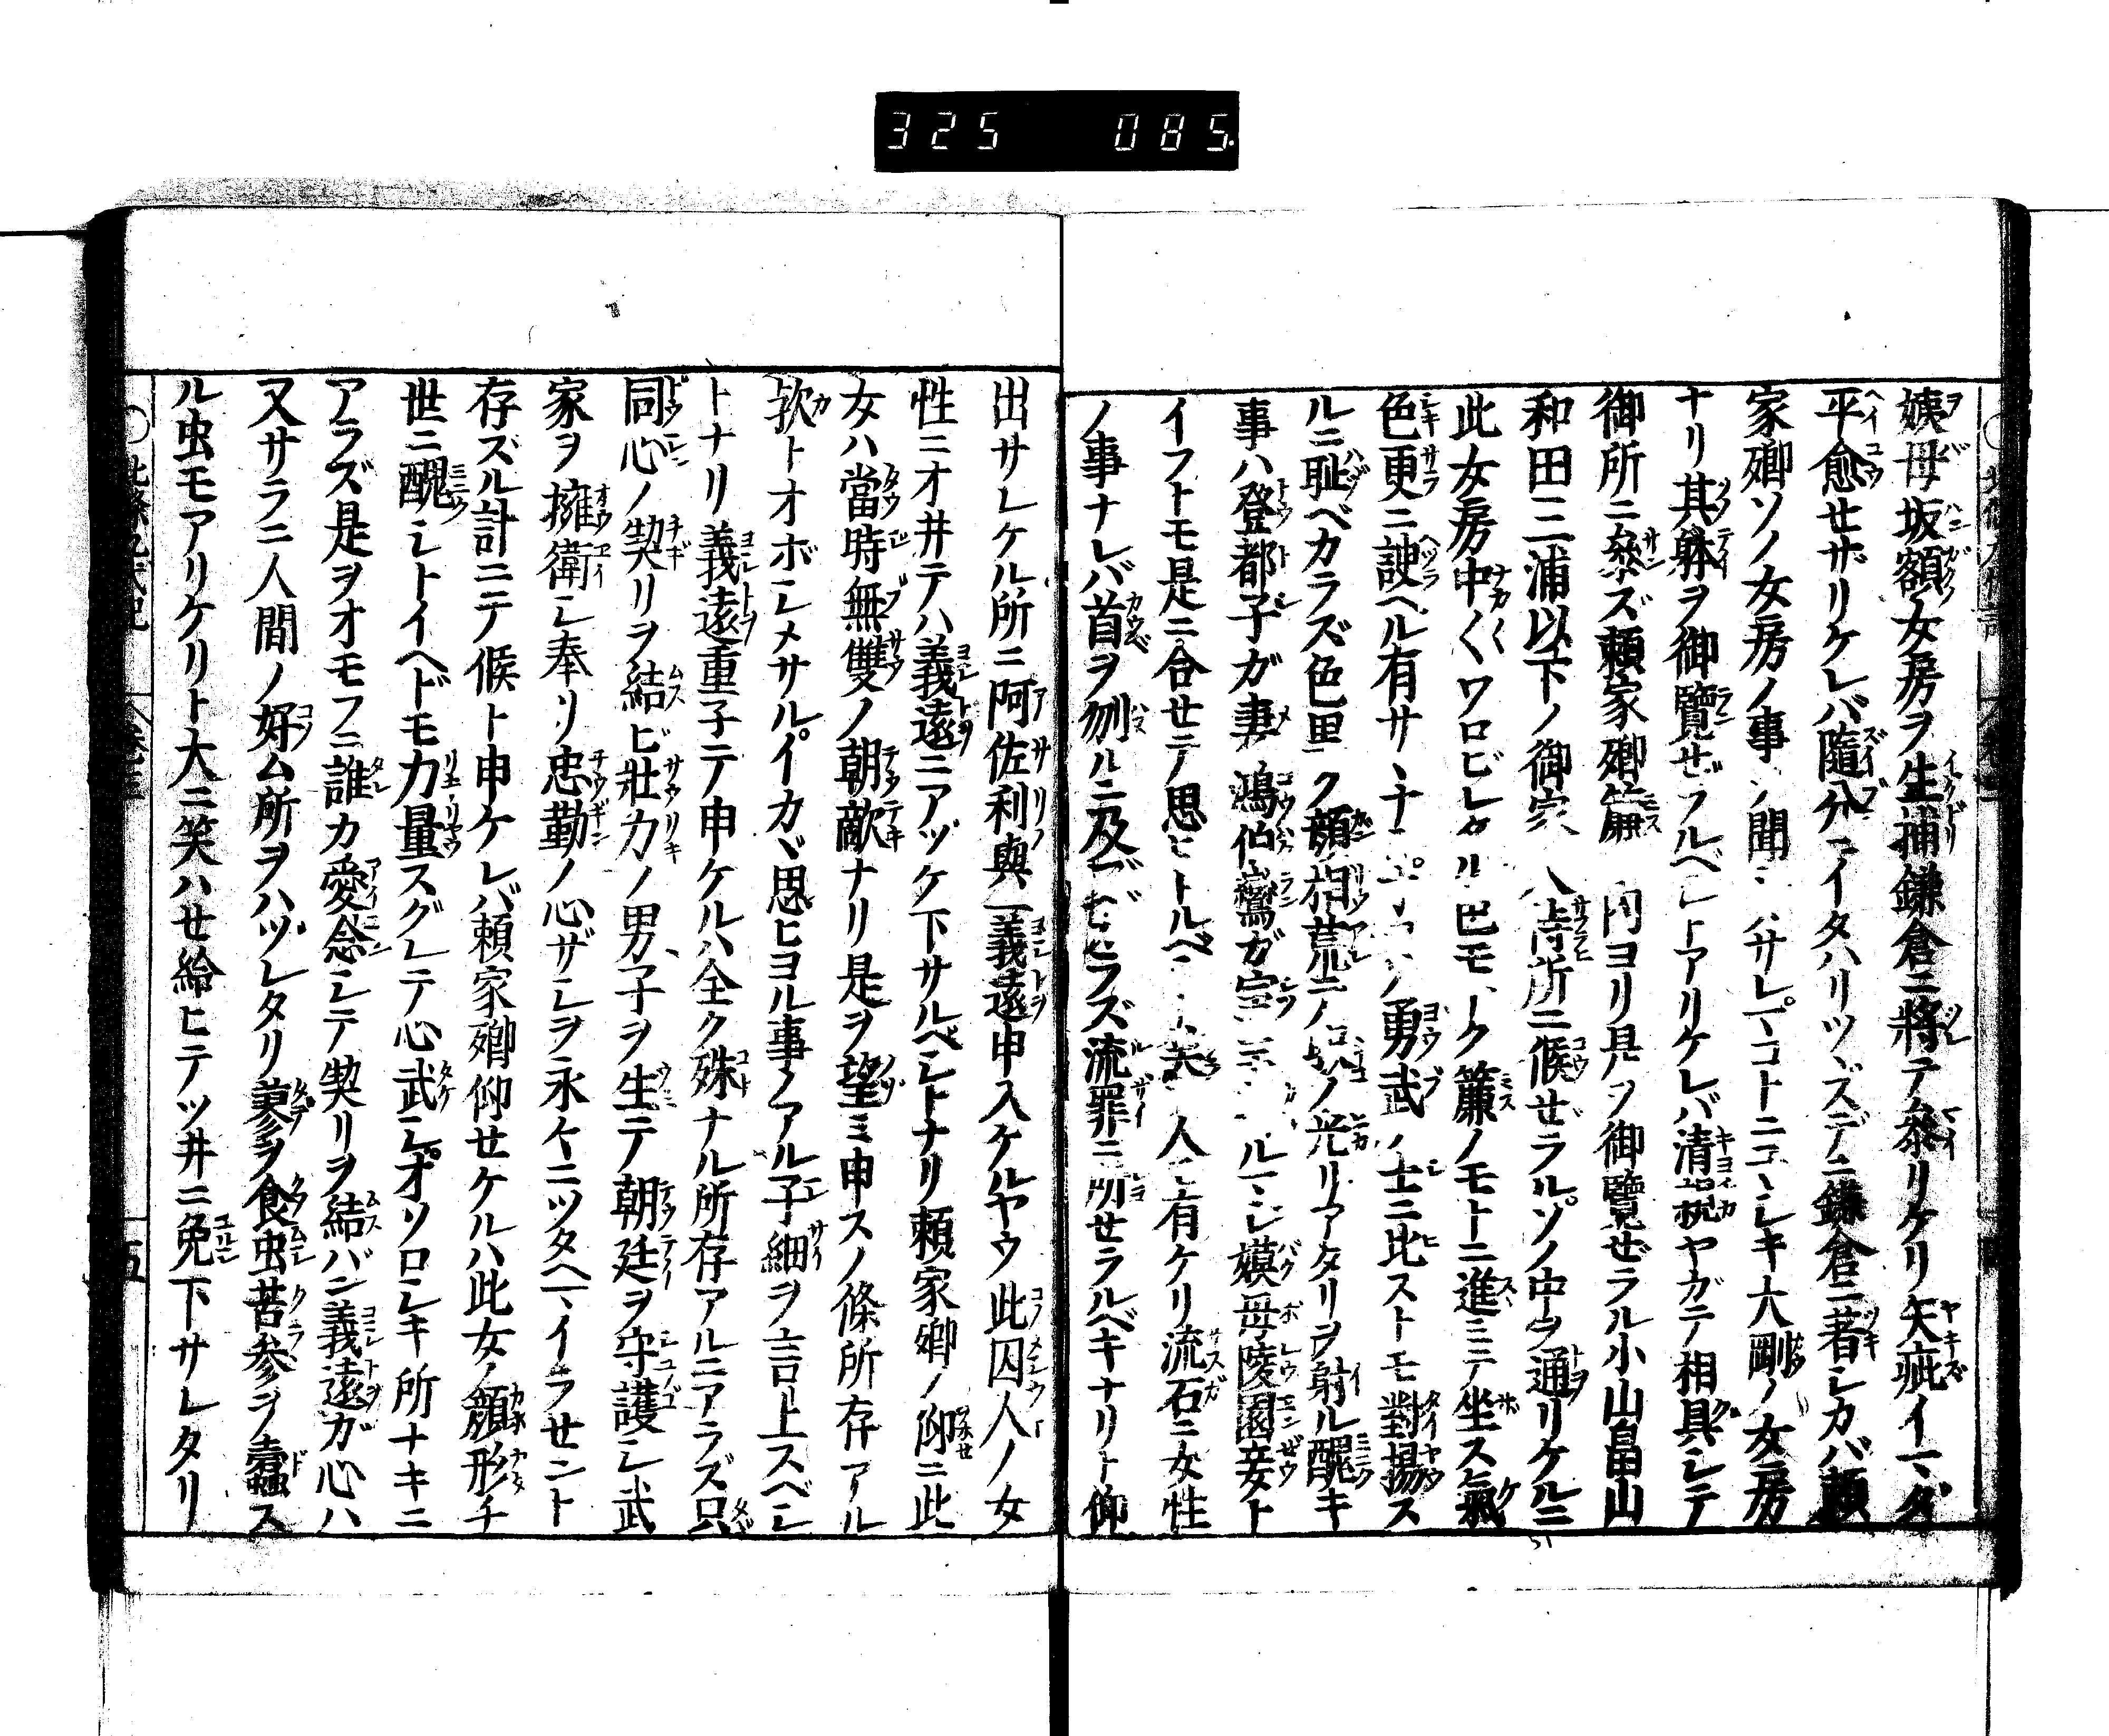 325 085
姨母坂額ノ女房ヲ生捕鎌倉ニ將テ參リケリ矢疵イマダ
平愈セザリケレバ隨分ニイタハリツヽズデニ鎌倉ニ著シカバ頼
家卿ソノ女房ノ事ヲ聞 サレコトニユヽシキ大剛ノ女房
ナリ其躰ヲ御覽ゼラルベシトアリケレバ清 ヤガテ相具シテ
御所ニ參ズ頼家卿簾 内ヨリ是ヲ御覽ゼラル小山畠山
和田三浦以下ノ御家人侍所ニ候ゼラルソノ中ヲ通リケルニ
此女房中〱ワロビレタル色モ ク簾ノモトニ進ミテ坐ス氣
色更ニ諛ヘル有サ ナ ノ勇武ノ士ニ比ストモ對揚ス
ルニ耻ベカラズ色黒ク顔 荒 ノ光リアタリヲ射ル醜キ
事ハ登都子ガ妻鴻伯鸞ガ室 ル シ嫫母陵園妾ト
イフトモ是ニ合セテ思ヒトルベ 美人 有ケリ流石ニ女性
ノ事ナレバ首ヲ刎ルニ及 ズ流罪ニ所セラルベキナリト仰
出サレケル所ニ阿佐利與一義遠申入ケルヤウ此囚人ノ女
性ニオ井テハ義遠ニアヅケ下サルベシトナリ頼家卿ノ仰ニ此
女ハ當時無雙ノ朝敵ナリ是ヲ望ミ申スノ條所存アル
歟トオボシメサルイカヾ思ヒヨル事ノアル子細ヲ言上スベシ
トナリ義遠重子テ申ケルハ全ク殊ナル所存アルニアラズ只
同心ノ契リヲ結ビ壯力ノ男子ヲ生テ朝廷ヲ守護シ武
家ヲ擁衛シ奉リ忠勤ノ心ザシヲ永ケニツタヘマイラセント
存ズル計ニテ候ト申ケレバ頼家卿仰セケルハ此女ノ顔形チ
世ニ醜シトイヘドモ力量スグレテ心武シオソロシキ所ナキニ
アラズ是ヲオモフニ誰カ愛念シテ契リヲ結バン義遠ガ心ハ
又サラニ人間ノ好ム所ヲハヅレタリ蓼ヲ食虫苦參ヲ蠧ス
ル虫モアリケリト大ニ笑ハセ給ヒテツ井ニ免下サレタリ
五